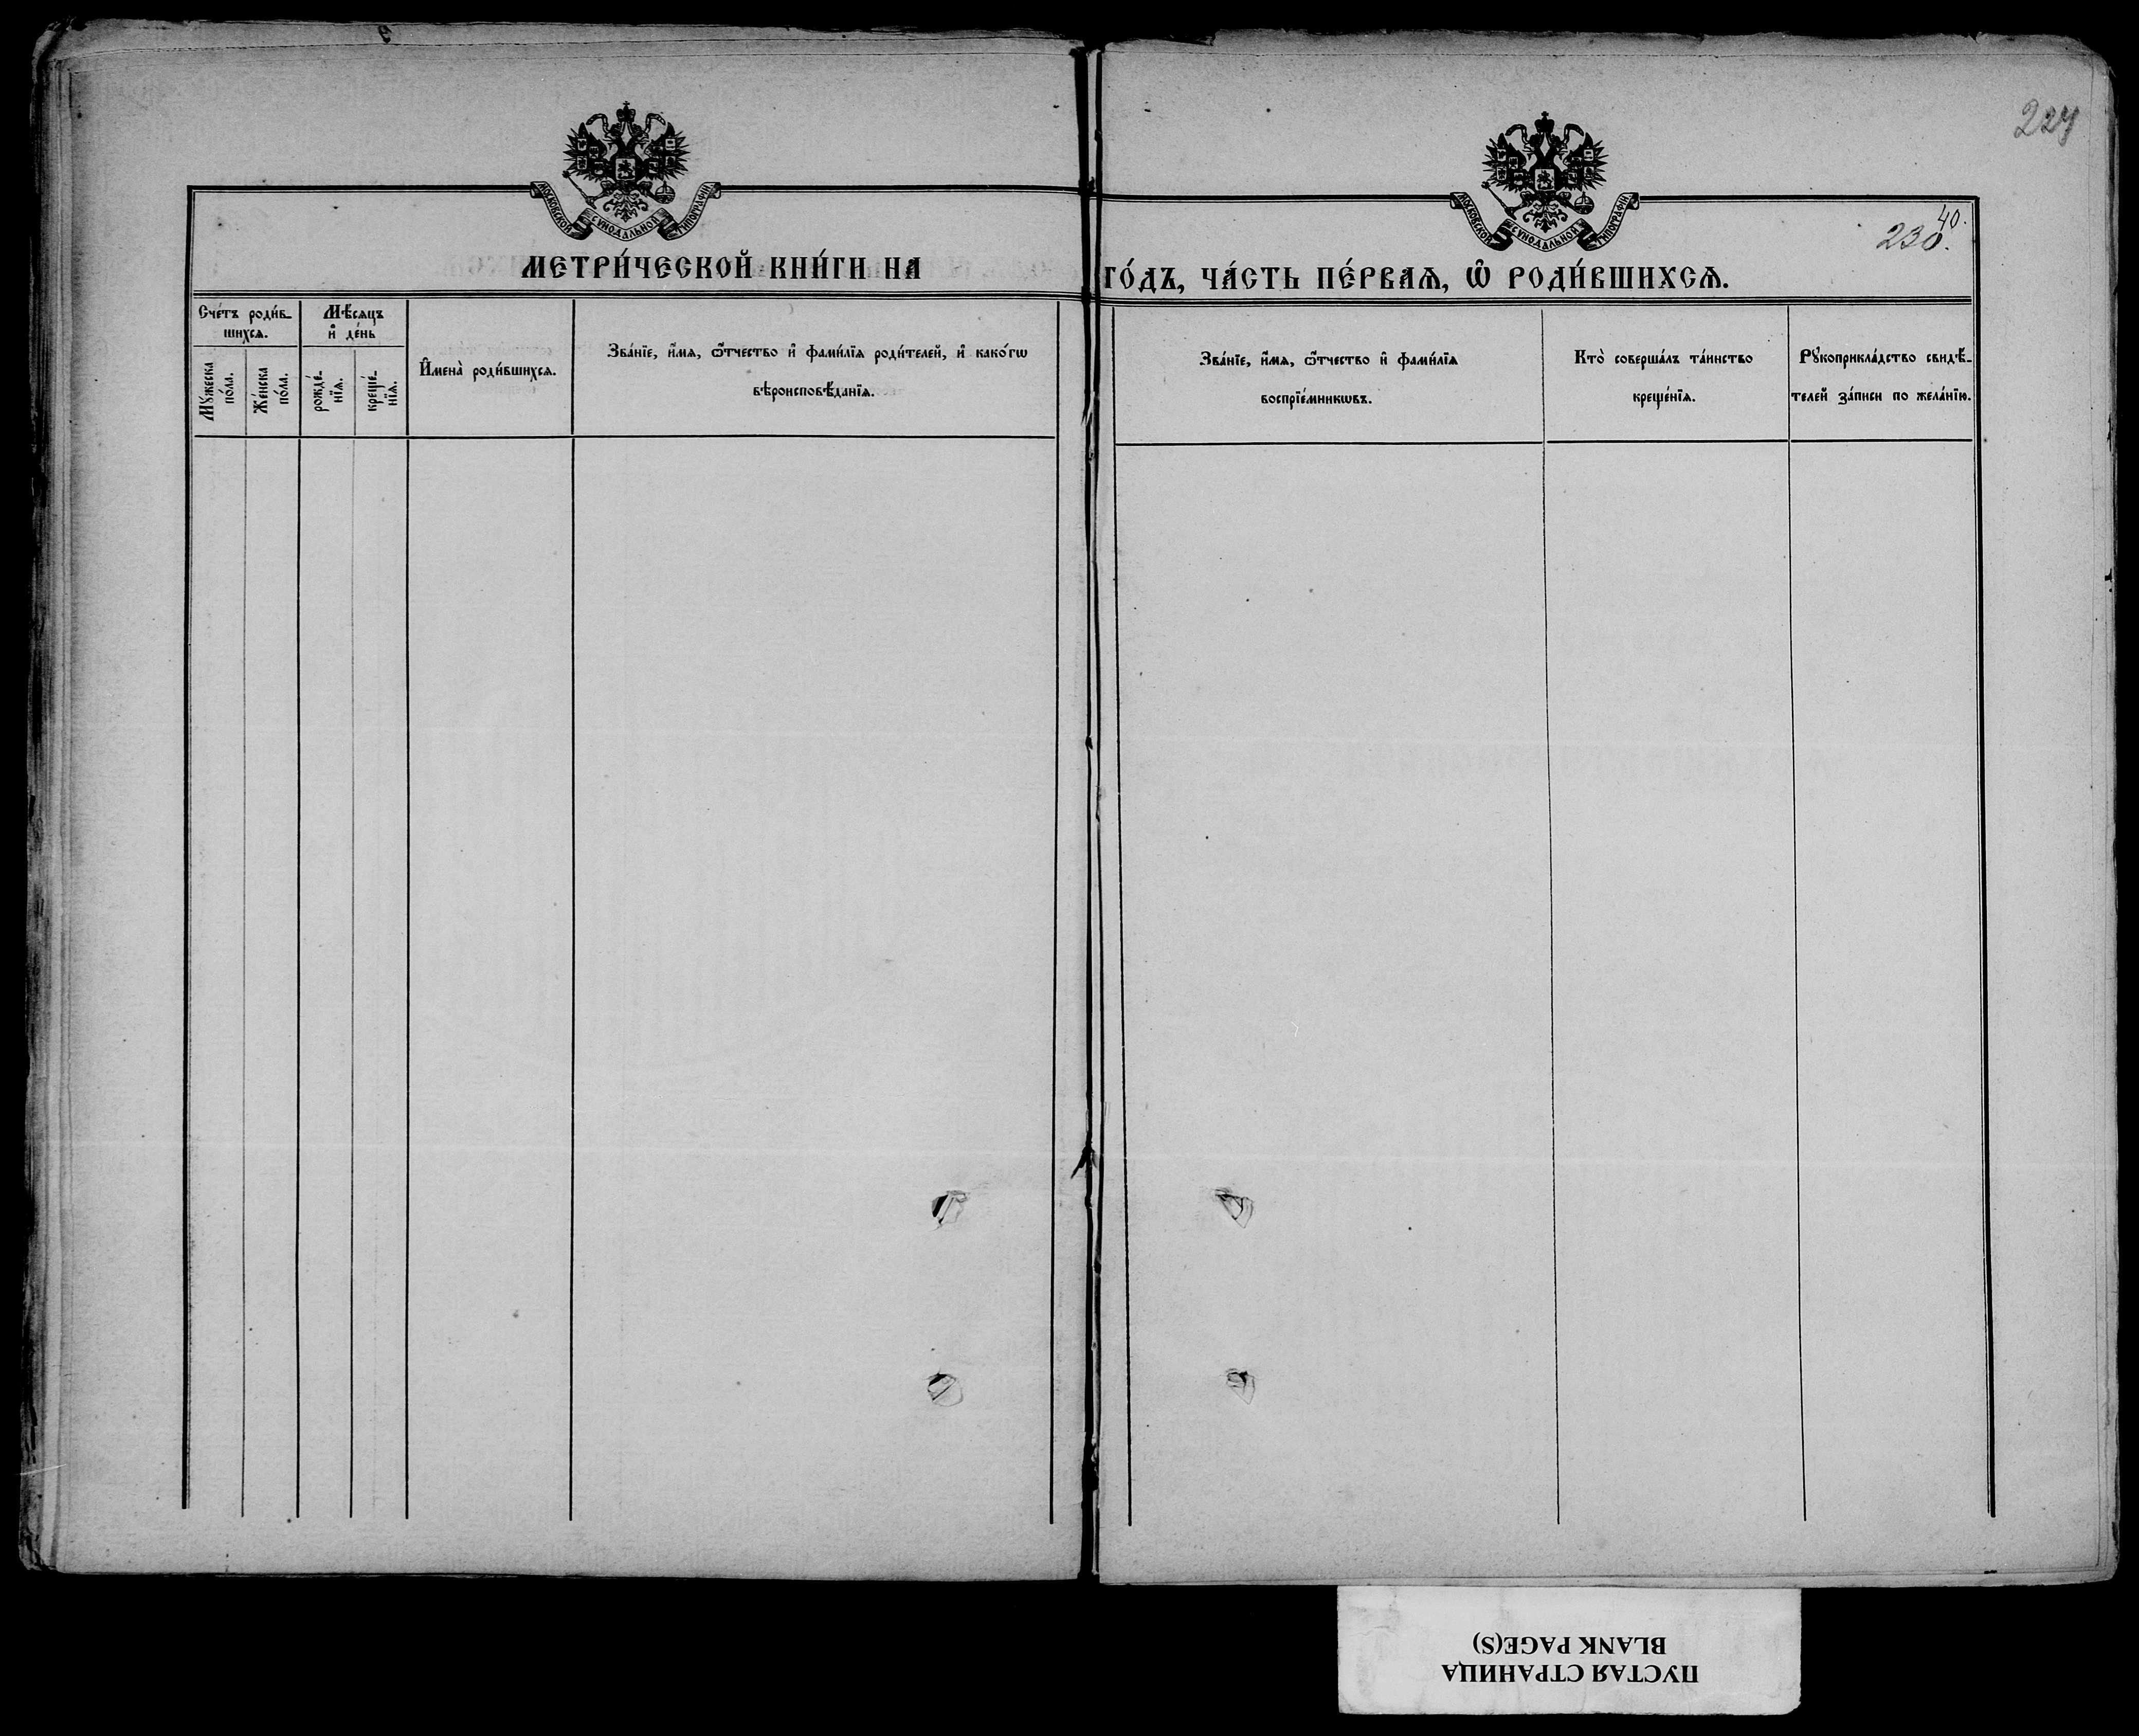 227
МОСКОВСКОЙ СѴНОДАЛЬНОЙ ТИПОГРАФІИ
МОСКОВСКОЙ СѴНОДАЛЬНОЙ ТИПОГРАФІИ
40.
230.
МЕТРИ́ЧЕСКОЙ КНИ́ГИ НА
ГО́ДЪ, ЧА́СТЬ ПЕ́РВАѦ, Ѡ҆ РОДИ́ВШИХСѦ.
Сче́тъ роди́в-
шихсѧ.
Мꙋ́жеска
по́ла.
Же́нска
по́ла.
Мѣ́сѧцъ
и҆ де́нь
рожде́-
нїѧ.
креще́-
нїѧ.
И҆мена̀ роди́вшихсѧ.
Зва́нїе, и҆́мѧ, ѻ҆́тчество и҆ фами́лїѧ роди́телей, и҆ како́гѡ
вѣроисповѣ́данїѧ.
Зва́нїе, и҆́мѧ, ѻ҆́тчество и҆ фами́лїѧ
воспрїе́мникѡвъ.
Кто̀ соверша́лъ та́инство
креще́нїѧ.
Рꙋкоприкла́дство свидѣ́-
телей за́писи по жела́нїю.
ПУСТАЯ СТРАНИЦА
BLANK PAGE(S)